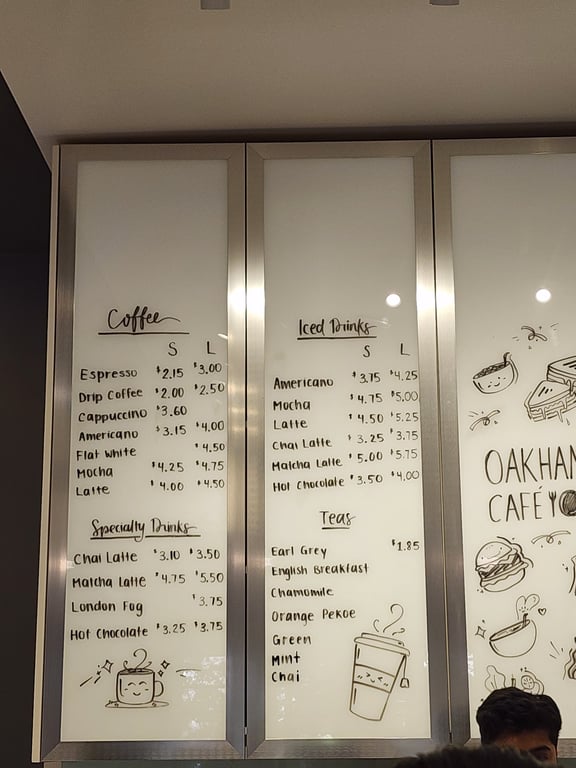 Coffee
S L
Espresso $2.15 $3.00
Drip Coffee $2.00 $2.50
Cappuccino $3.60
Americano $3.15 $4.00
Flat White $4.50
Mocha $4.25 $4.75
Latte $4.00 $4.50
Specialty Drinks
Chai Latte $3.10 $3.50
Matcha Latte $4.75 $5.50
London Fog $3.75
Hot Chocolate $3.25 $3.75
Iced Drinks
S L
Americano $3.75 $4.25
Mocha $4.75 $5.00
Latte $4.50 $5.25
Chai Latte $3.25 $3.75
Matcha Latte $5.00 $5.75
Hot Chocolate $3.50 $4.00
Teas
Earl Grey $1.85
English Breakfast
Chamomile
Orange Pekoe
Green
Mint
Chai
OAKHAM
CAFÉ